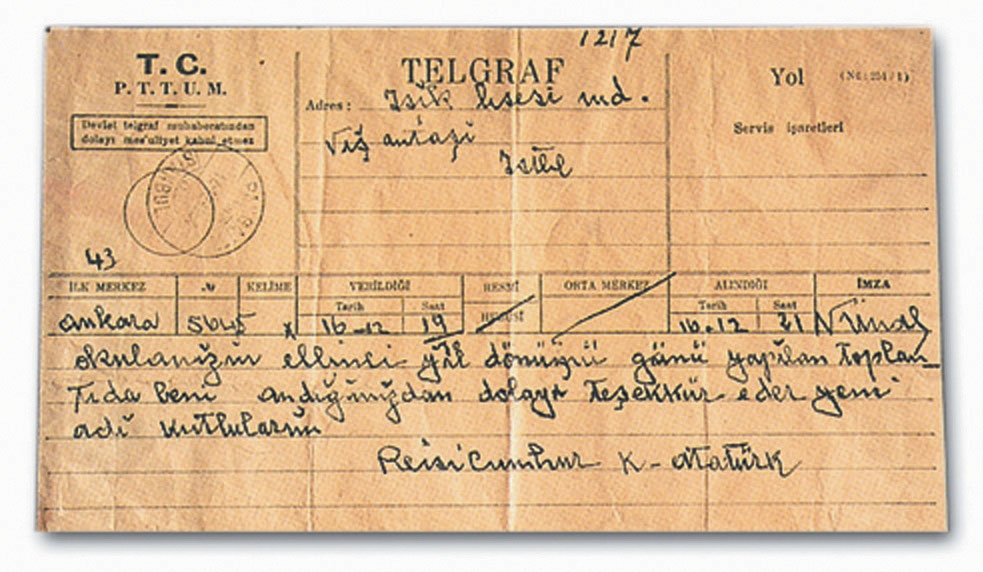 1217
T. C.
P. T. T. U. M.
Devlet telgraf muhaberatından
dolayı mes'uliyet kabul etmez
TELGRAF
Adres : Işik Lisesi md.
Niş antaşi
Istbl
Yol (No: 251/1)
Servis işaretleri
ISTANBUL
43
İLK MERKEZ № KELİME VERİLDİĞİ RESMÎ ORTA MERKEZ ALINDIĞI İMZA
Tarih Saat HUSUSÎ Tarih Saat
ankara 16-12 19 16-12 21
okulunuzun ellinci yıl dönüğnü günü yapılan toplan_
tıda beni andığınızdan dolayı teşekkür eder yeni
adı kutlularım
Reisicumhur K-Atatürk